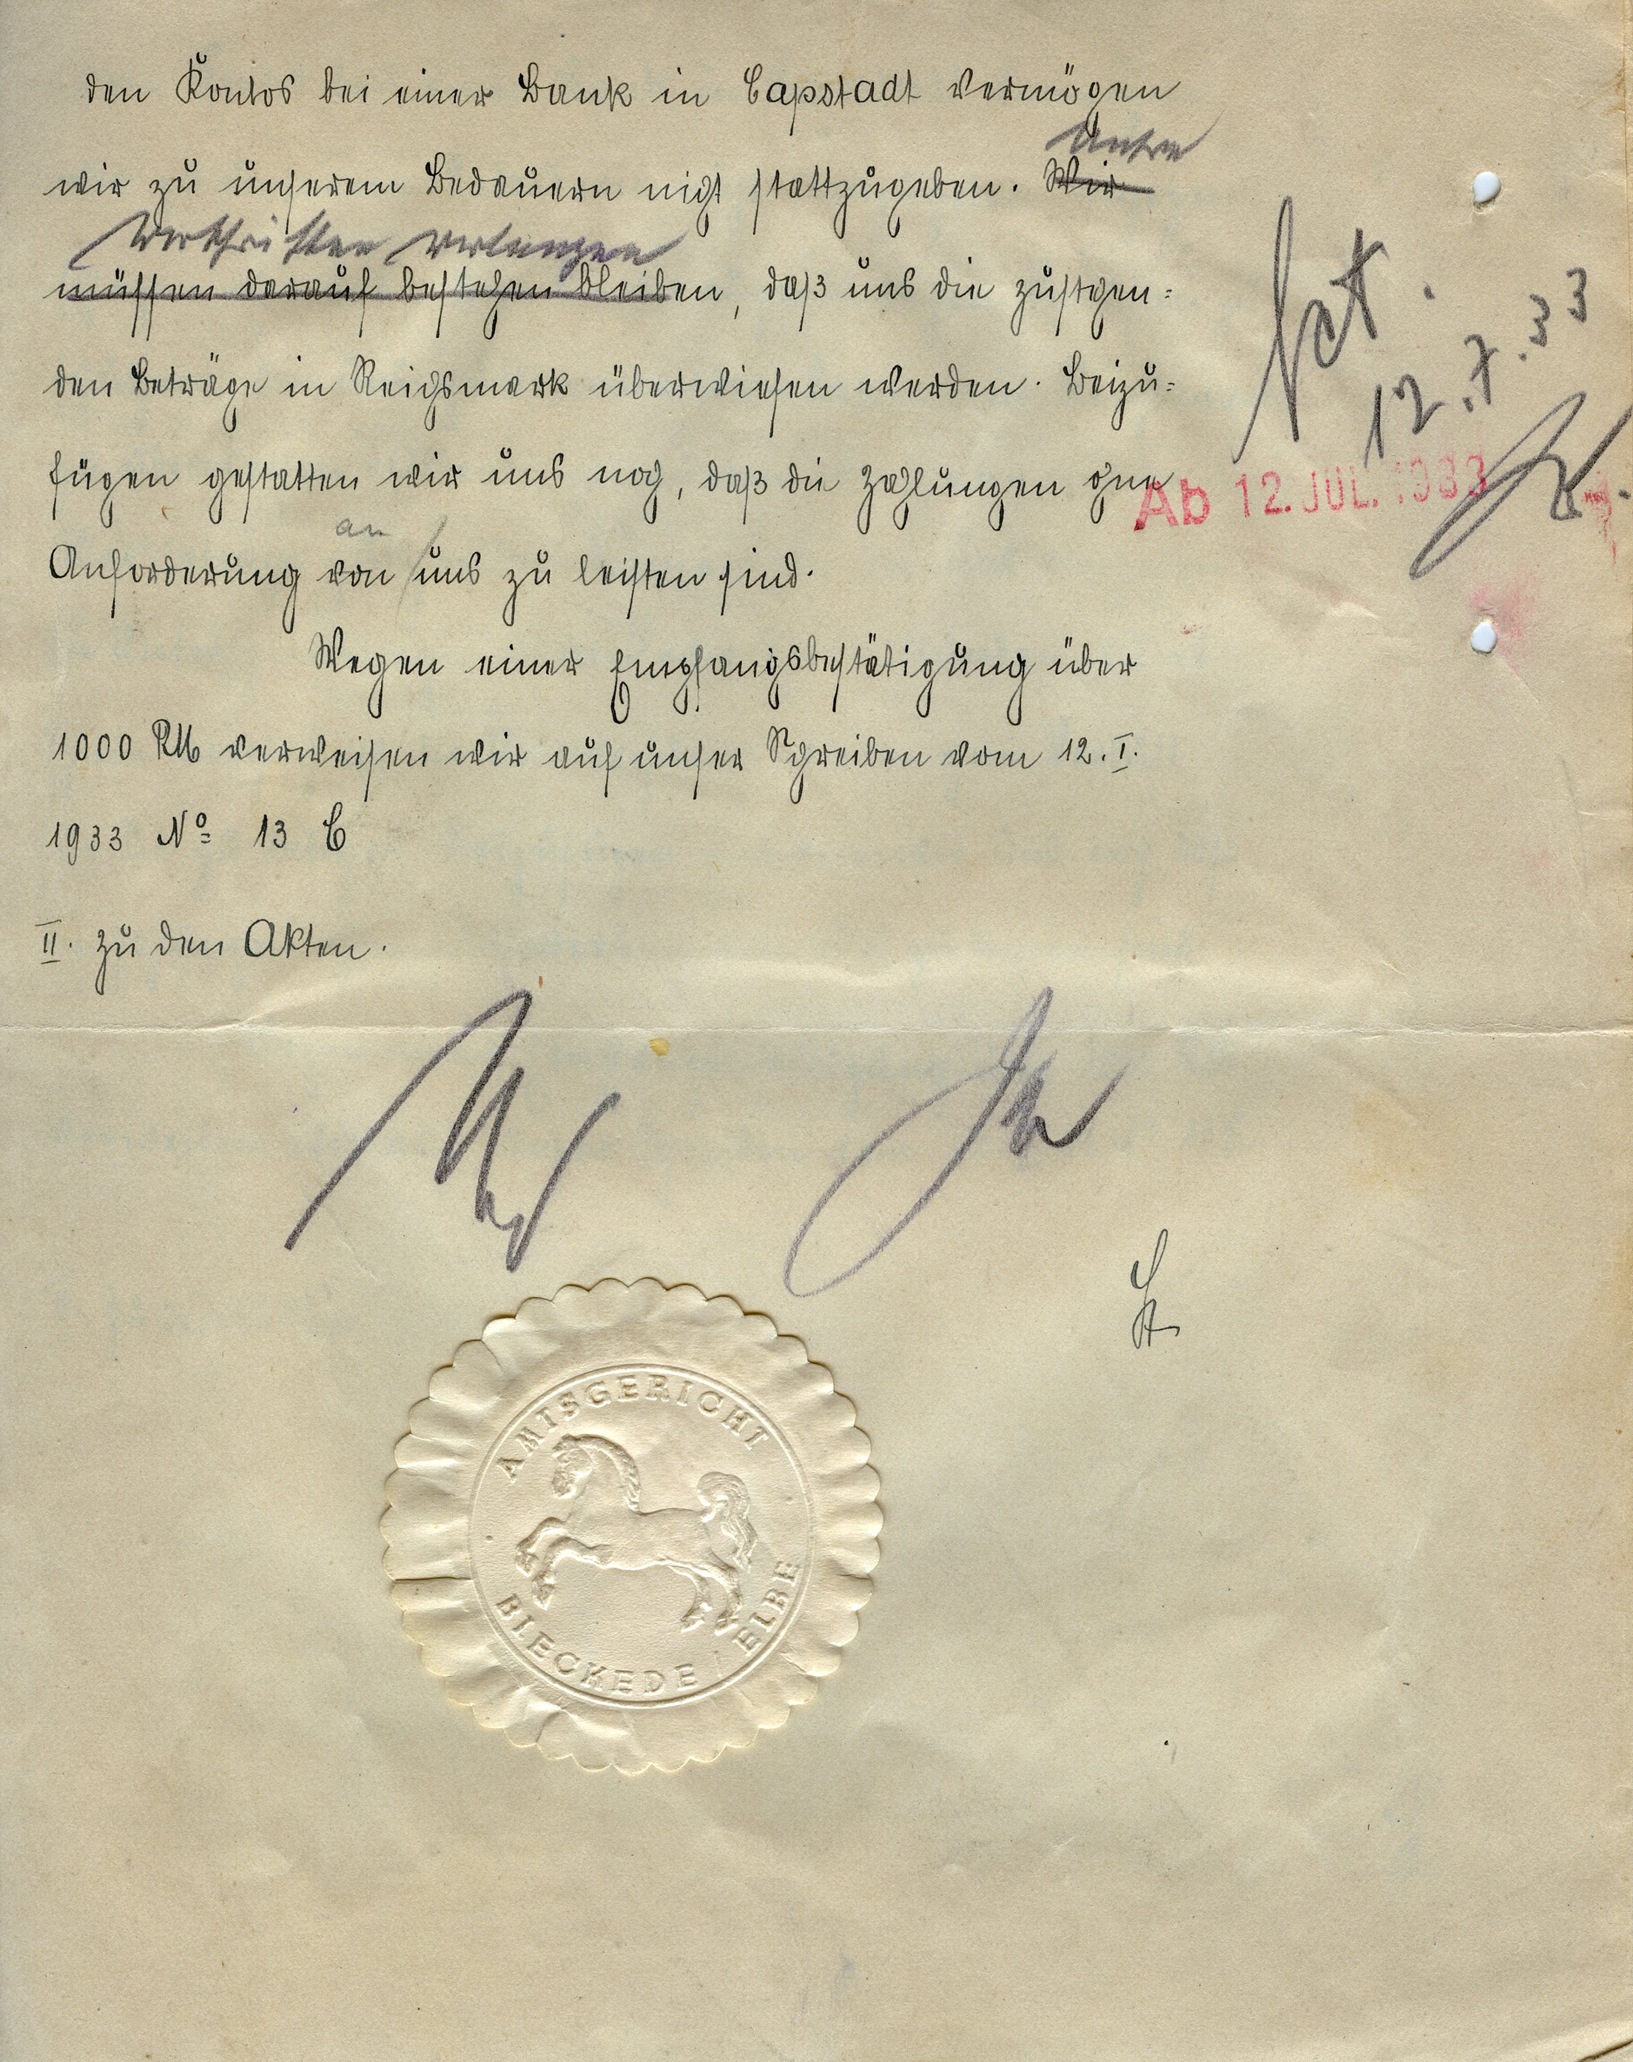 den Kontos bei einer Bank in Capstadt vermögen
Unsere
wir zu unserem Bedauern nicht stattzugeben. Wir
Vorschriften verlangen
müssen darauf bestehen bleiben, daß uns die zustehen=
den Beträge in Reichsmark überwiesen werden. Beizu=
fügen gestatten wir uns noch, daß die Zahlungen ohne
an
Anforderung von uns zu leisten sind.
Wegen einer Empfangsbestätigung über
1000 RM verweisen wir auf unser Schreiben vom 12. I.
1933 No 13 C
II. zu den Akten.
12.7.33
Ab 12. JUL. 1933
AMTSGERICHT
BLECKEDE / ELBE